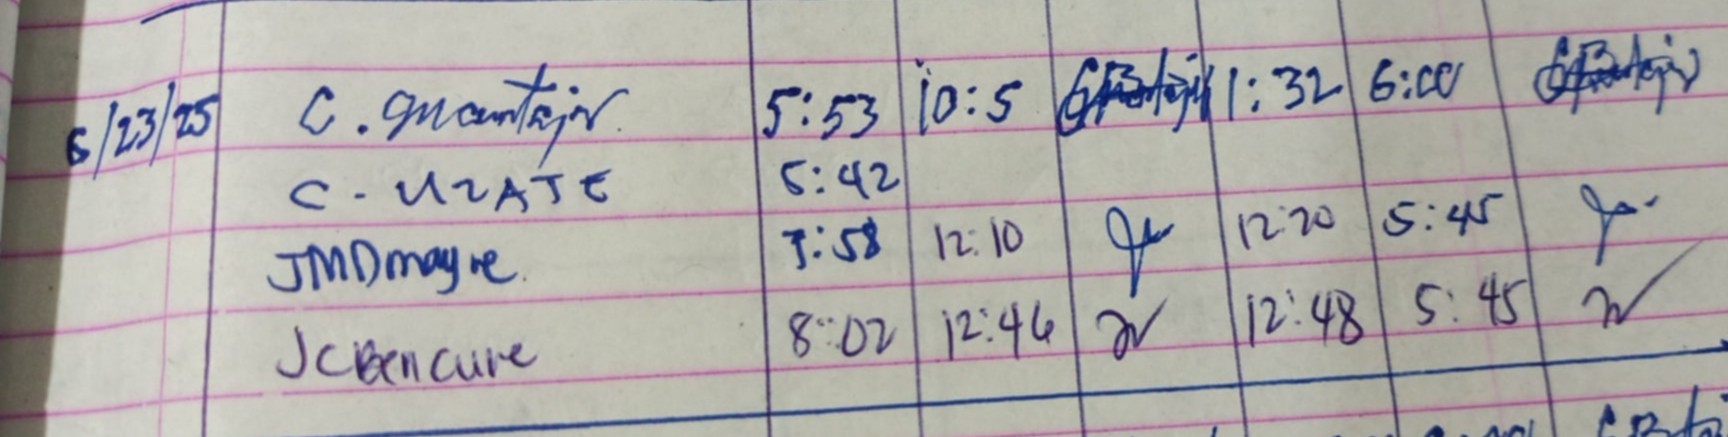 6/23/25 C. 5:53 10:5 1:32 6:00
C. UZATE 5:42
JMDmayre 7:58 12:10 12:20 5:45
JCBencure 8:02 12:46 12:48 5:45